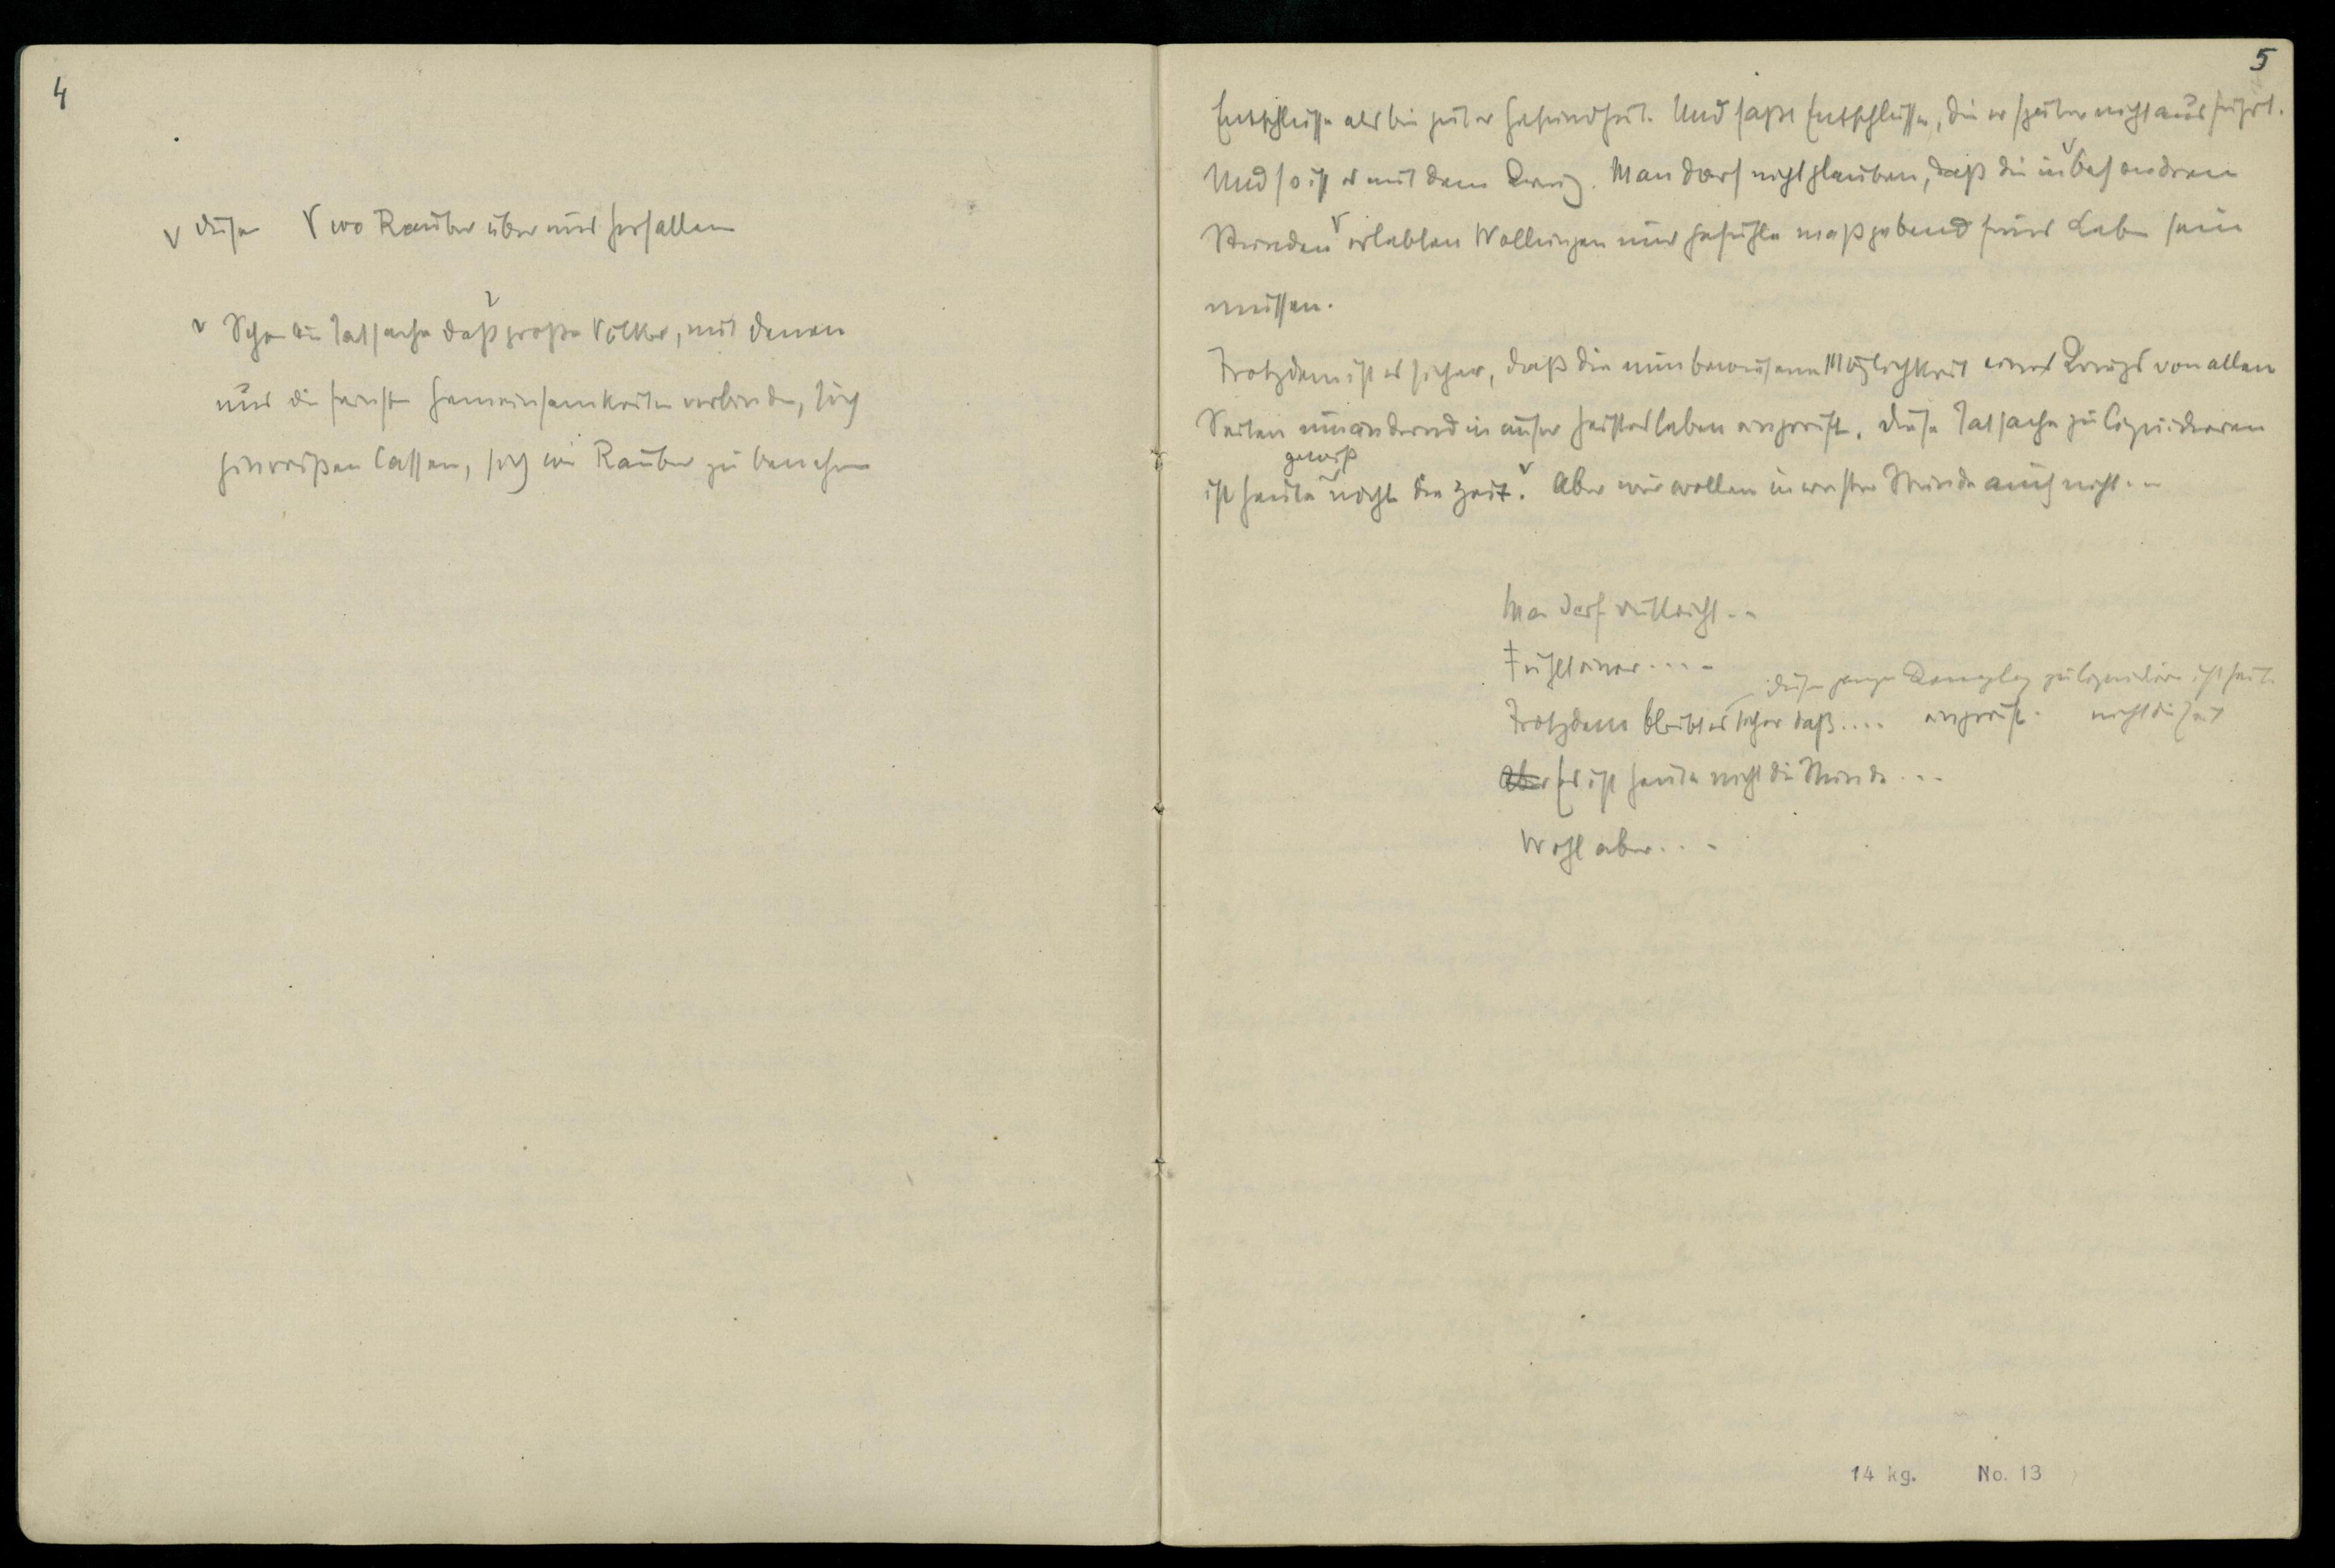 4
v diesen V wo Räuber über uns herfallen
v Schon die Tatsache daß v große Völker, mit denen
uns die feinsten Gemeinsamkeiten verbinden, sich
hinreißen lassen, sich wie Räuber zu benehmen
5
Entschlüsse als bei guter Gesundheit. Und faßt Entschlüsse, die er später nicht ausführt.
Und so ist es mit dem Krieg. Man darf nicht glauben, daß die in v besonderen
Stunden v erlebten Wollungen und Gefühle maßgebend fürs Leben sein
müssen.
Trotzdem ist es sicher, daß die nun bewiesene Möglichkeit eines Kriegs von allen
Seiten umändernd in unser Geistesleben eingreift. Diese Tatsache zu liquidieren
gewiß
ist heute v nicht die Zeit. v Aber wir wollen in ernster Stunde auch nicht..
Man darf vielleicht..
Fühlt einer....
diesen ganzen Komplex zu liquidieren ist heut.
Trotzdem bleibt es sicher daß.... eingreift. nicht die Zeit
Aber Es ist heute nicht die Stunde...
Wohl aber...
14 kg. No. 13